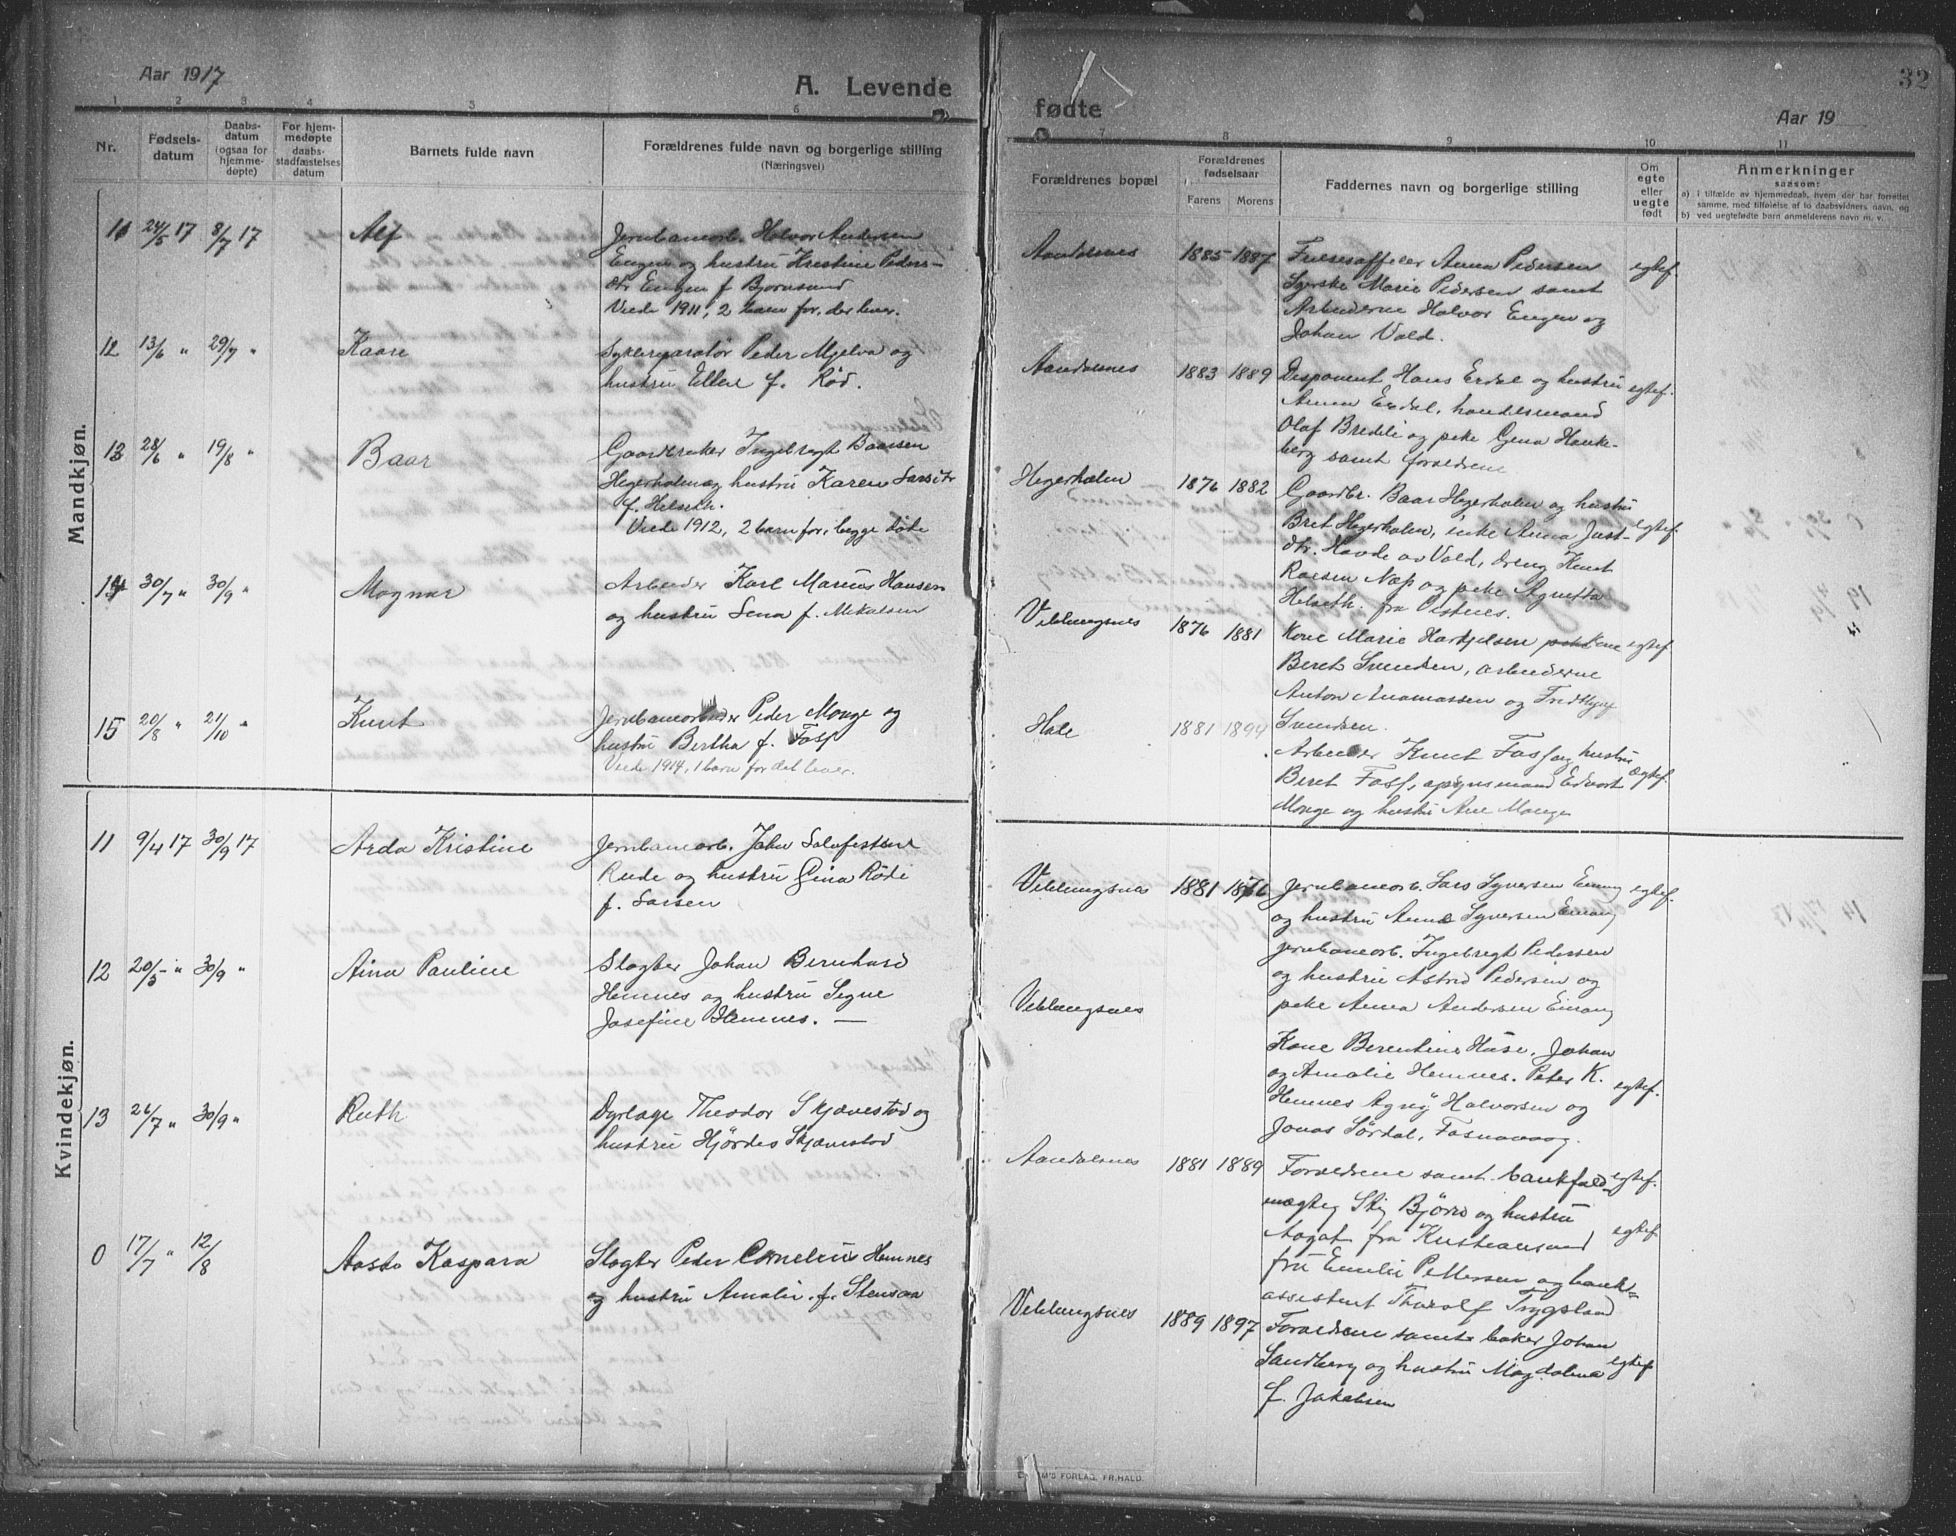 Aar 1917
A. Levende
1 2 3 4 5 6
Nr.
Fødsels-
datum
Daabs-
datum
(ogsaa for
hjemme-
døpte)
For hjem-
medøpte
daabs-
stadfæstelses
datum
Barnets fulde navn
Forældrenes fulde navn og borgerlige stilling
(Næringsvei)
Mandkjøn.
11 24/5 17 8/7 17 Alf
Jernbanearb. Halvor Andersen
Engen og hustru Kristine Peders-
dtr Engen f. Bjørnsund
Viede 1911, 2 barn før, der lever.
12 13/6 " 29/7 " Kaare
Sykkelreparatør Peder Mjelva og
hustru Ellen f. Rød.
13 28/6 " 19/8 " Baar
Gaardbruker Ingebregt Baarsen
Hegerholm og hustru Karen Larsdtr
f. Helseth.
Viede 1912, 2 barn før, begge døde
14 30/7 " 30/9 " Magnar
Arbeider Karl Marius Hansen
og hustru Lena f. Mikalsen
15 20/8 " 21/10 " Knut
Jernbanearbeider Peder Monge og
hustru Bertha f. Foss
Viede 1914, 1 barn før det lever.
Kvindekjøn.
11 9/4 17 30/9 17 Arda Kristine
Jernbanearb. John
Rude og hustru Gina Rödi
f. Larsen
12 20/5 " 30/9 " Aina Pauline
Slagter Johan Bernhard
Hemnes og hustru Signe
Josefine Hemnes. —
13 26/7 " 30/9 " Ruth
Dyrlæge Theodor Skjævestad og
hustru Hjördis Skjævestad
0 17/7 " 12/8 Aasta Kaspara
Slagter Peder Cornelius Hemnes
og hustru Amalie f. Stensaa
fødte
Aar 19
32
7 8 9 10 11
Forældrenes bopæl
Forældrenes
fødselsaar
Farens Morens
Faddernes navn og borgerlige stilling
Om
egte
eller
uegte
født
Anmerkninger
saasom:
a) i tilfælde av hjemmedaab, hvem der har forrettet
samme, med tilføielse af to daabsvidners navn, og
b) ved uegtefødte barn anmelderens navn m. v.
Aandalsnes 1885 1887 Anna Pedersen egtef.
Syerske Marie Pedersen samt
Arbeiderne Halvor Engen og
Johan Vold.
Aandalsnes 1883 1889 Disponent Hans Erdal og hustru egtef.
Anna Erdal, handelsmand
Olaf Bredeli og pike Gjena Hauke-
berg samt forældrene
Hegerholm 1876 1882 Gaardbr. Baar Hegerholm og hustru
Bret Hegerholm, enke Anna Just- egtef.
dtr. Havde av Vold, dreng Knut
Næs og pike Agnetta
Helseth. fra
Veblungsnes 1876 1881 Kone Marie Hartjelsen egtef
Beret Svendsen, arbeiderne
Anton Anamassen og
Svendsen.
Hole 1881 1894
Arbeider Knut Foss og hustru
Beret Foss, opsynsmand Edvart egtef.
Monge og hustru Ane Monge
Veblungsnes 1881 1876 Jernbanearb. Lars Syversen Einang egtef.
og hustru Anna Syversen Einang
jernbanearb. Ingebregt Pedersen
og hustru Astrid Pedersen og
pike Anna Andersen Einang
Veblungsnes
Kone Berentine Huse, Johan
og Amalie Hemnes. Peter K. egtef.
Hemnes Agnes Halvorsen og
Jonas Sördal, Fosnavaag.
Aandalsnes 1881 1889 Forældrene samt bankfuld- egtef.
mægtig Stig Björn og hustru
Aagot fra Kristiansund egtef
fru Emilie Pettersen og bank=
assistent Thorolf Trygsland
Veblungsnes 1889 1897 Forældrene samt baker Johan
Sandberg og hustru Magdalena egtef
f. Jakobsen
FORLAG, FR.HALD.